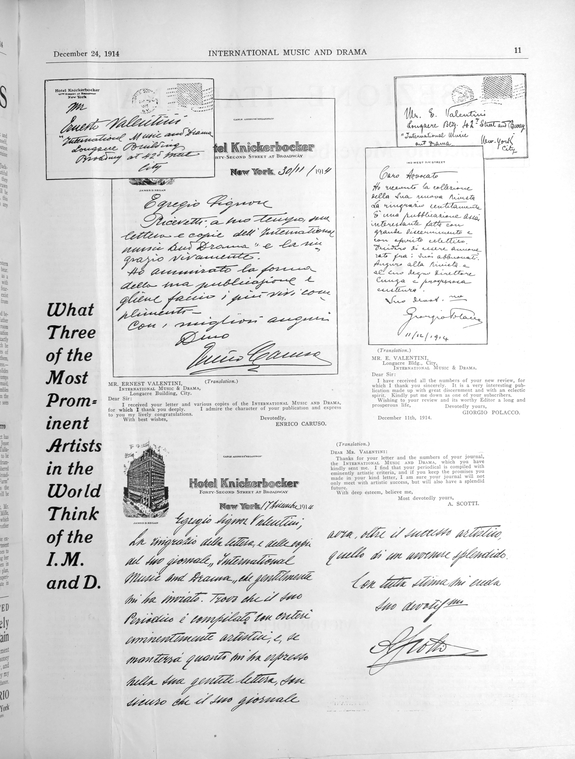 December 24, 1914
INTERNATIONAL MUSIC AND DRAMA
11
Hotel Knickerbocker
New York
Mr
Ernesto Valentini
"International Music and Drama
Longacre Building
Broadway at 42d
City
tel Knickerbocker
Forty-Second Street at Broadway
New York 30/11/1914
Egregio Signore
Ricevetti a suo tempo, sua
lettera e copie dell'International
music and Drama" e la rin
grazio vivamente.
Ho ammirato la forma
della sua pubblicazione e
gliene faccio i più vivi com
plimenti
Con i migliori auguri
Enrico Caruso
Mr. E. Valentini
Longacre Bldg. 42d Street and
"International Music
and Drama
New-York
City
Caro Avvocato
Ho ricevuto la collezione
della sua nuova rivista
La ringrazio sentitamente
È una pubblicazione assai
interessante fatta con
grande discernimento e
con spirito eclettico.
fra i suoi abbonati.
Auguro alla Rivista e
al suo degno Direttore
lunga e prosperosa
Giorgio Polacco
11/12/1914
What
Three
of the
Most
Prom=
inent
Artists
in the
World
Think
of the
I.M.
and D.
(Translation.)
MR. ERNEST VALENTINI,
INTERNATIONAL MUSIC & DRAMA,
Longacre Building, City.
Dear Sir:
I received your letter and various copies of the INTERNATIONAL MUSIC AND DRAMA,
for which I thank you deeply. I admire the character of your publication and express
to you my lively congratulations.
With best wishes,
Devotedly,
ENRICO CARUSO.
(Translation.)
MR. E. VALENTINI,
Longacre Bldg., City,
INTERNATIONAL MUSIC & DRAMA.
Dear Sir:
I have received all the numbers of your new review, for
which I thank you sincerely. It is a very interesting pub-
lication made with great discernment and with an eclectic
spirit. Kindly put me down as one of your subscribers.
Wishing to your review and its worthy Editor a long and
prosperous life,
Devotedly yours,
GIORGIO POLACCO.
December 11th, 1914.
(Translation.)
DEAR MR. VALENTINI:
Thanks for your letter and the numbers of your journal,
the INTERNATIONAL MUSIC AND DRAMA, which you have
kindly sent me. I find that your periodical is compiled with
eminently artistic criteria, and if you keep the promises you
made in your kind letter, I am sure your journal will not
only meet with artistic success, but will also have a splendid
future.
With deep esteem, believe me,
Most devotedly yours,
A. SCOTTI.
Hotel Knickerbocker
Forty-Second Street at Broadway
New York, 17 Dicembre 1914
Egregio Signor Valentini,
La ringrazio della lettera, e delle copie
del suo giornale, "International
Music and Drama", che gentilmente
mi ha inviato. Trovo che il suo
Periodico è compilato con criteri
eminentemente artistici, e, se
manterrà quanto mi ha espresso
nella sua gentile lettera, son
sicuro che il suo giornale
avrà, oltre il successo artistico,
quello di un avvenire splendido.
Con tutta stima mi creda
suo devotissmo
AScotti